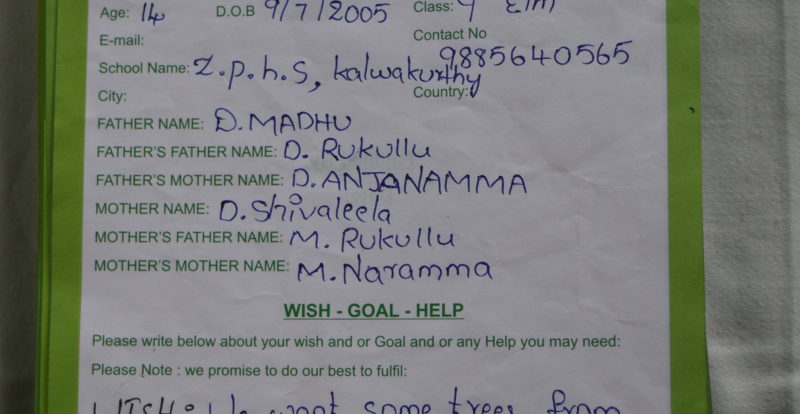 Age: 14 D.O.B 9/7/2005 Class: 9
E-mail: Contact No 9885640565
School Name: Z.p.h.S, kalwakurthy
City: Country:
FATHER NAME: D.MADHU
FATHER'S FATHER NAME: D. Rukullu
FATHER'S MOTHER NAME: D.ANJANAMMA
MOTHER NAME: D.Shivaleela
MOTHER'S FATHER NAME: M. Rukullu
MOTHER'S MOTHER NAME: M.Naramma
WISH - GOAL - HELP
Please write below about your wish and or Goal and or any Help you may need:
Please Note : we promise to do our best to fulfil:
WISH: We want some trees from